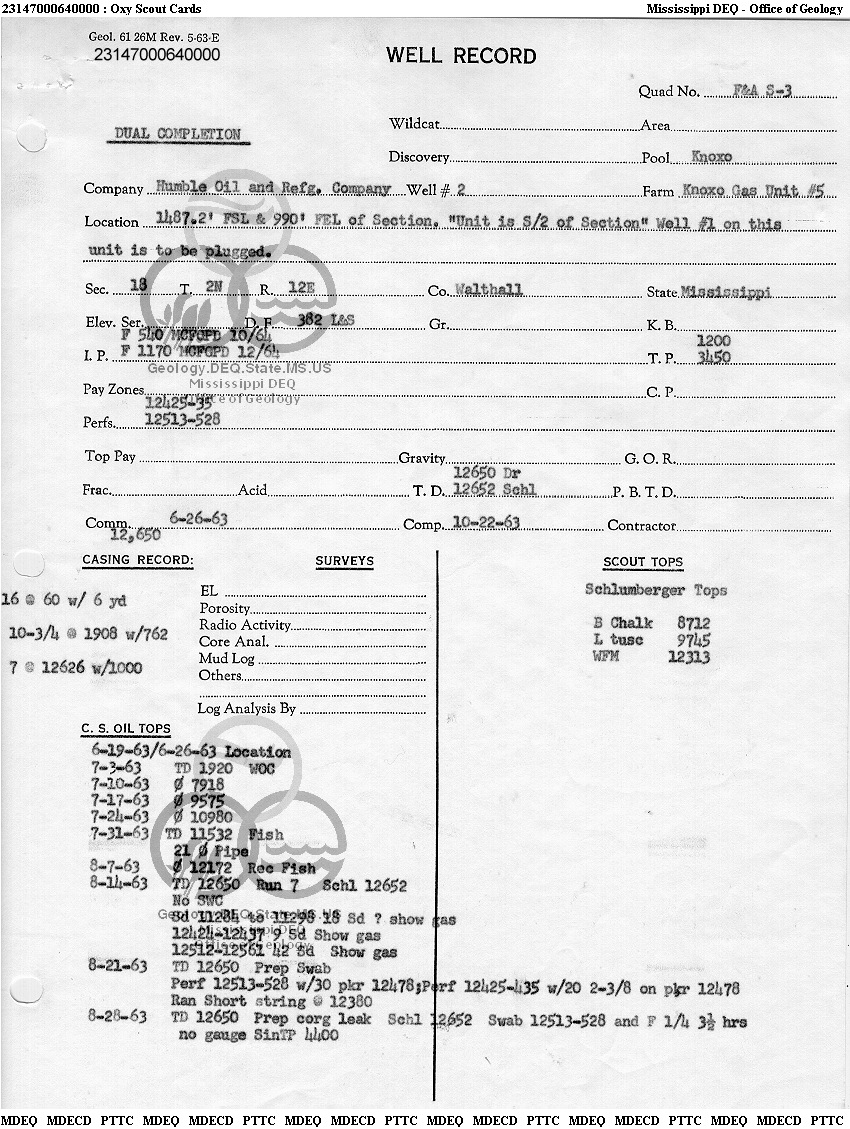 23147000640000 : Oxy Scout Cards Mississippi DEQ - Office of Geology
Geol. 61 26M Rev. 5-63-E
23147000640000
WELL RECORD
Quad No. F&A S-3
DUAL COMPLETION
Wildcat Area
Discovery Pool Knoxo
Company Humble Oil and Refg. Company Well # 2 Farm Knoxo Gas Unit #5
Location 1487.2' FSL & 990' FEL of Section. "Unit is S/2 of Section" Well #1 on this
unit is to be plugged.
Sec. 18 T. 2N R. 12E Co. Walthall State Mississippi
Elev. Ser. D. F. 382 L&S Gr. K. B.
F 540 MCFGPD 10/64 1200
I. P. F 1170 MCFGPD 12/64 T. P. 3450
Geology.DEQ.State.MS.US
Mississippi DEQ
Office of Geology
Pay Zones C. P.
12425-35
Perfs. 12513-528
Top Pay Gravity G. O. R.
12650 Dr
Frac. Acid T. D. 12652 Schl P. B. T. D.
Comm. 6-26-63 Comp. 10-22-63 Contractor
12,650
CASING RECORD: SURVEYS SCOUT TOPS
16 @ 60 w/ 6 yd
10-3/4 @ 1908 w/762
7 @ 12626 w/1000
EL
Porosity
Radio Activity
Core Anal.
Mud Log
Others
Log Analysis By
Schlumberger Tops
B Chalk 8712
L tusc 9745
WFM 12313
C. S. OIL TOPS
6-19-63/6-26-63 Location
7-3-63 TD 1920 WOC
7-10-63 Ø 7918
7-17-63 Ø 9575
7-24-63 Ø 10980
7-31-63 TD 11532 Fish
21 Ø Pipe
8-7-63 Ø 12172 Rec Fish
8-14-63 TD 12650 Run 7 Schl 12652
No SWC
Geology.DEQ.State.MS.US
Sd 11284 to 11298 18 Sd ? show gas
Mississippi DEQ
12424-12437 9 Sd Show gas
Office of Geology
12512-12561 42 Sd Show gas
8-21-63 TD 12650 Prep Swab
Perf 12513-528 w/30 pkr 12478;Perf 12425-435 w/20 2-3/8 on pkr 12478
Ran Short string @ 12380
8-28-63 TD 12650 Prep corg leak Schl 12652 Swab 12513-528 and F 1/4 3½ hrs
no gauge SinTP 4400
MDEQ MDECD PTTC MDEQ MDECD PTTC MDEQ MDECD PTTC MDEQ MDECD PTTC MDEQ MDECD PTTC MDEQ MDECD PTTC